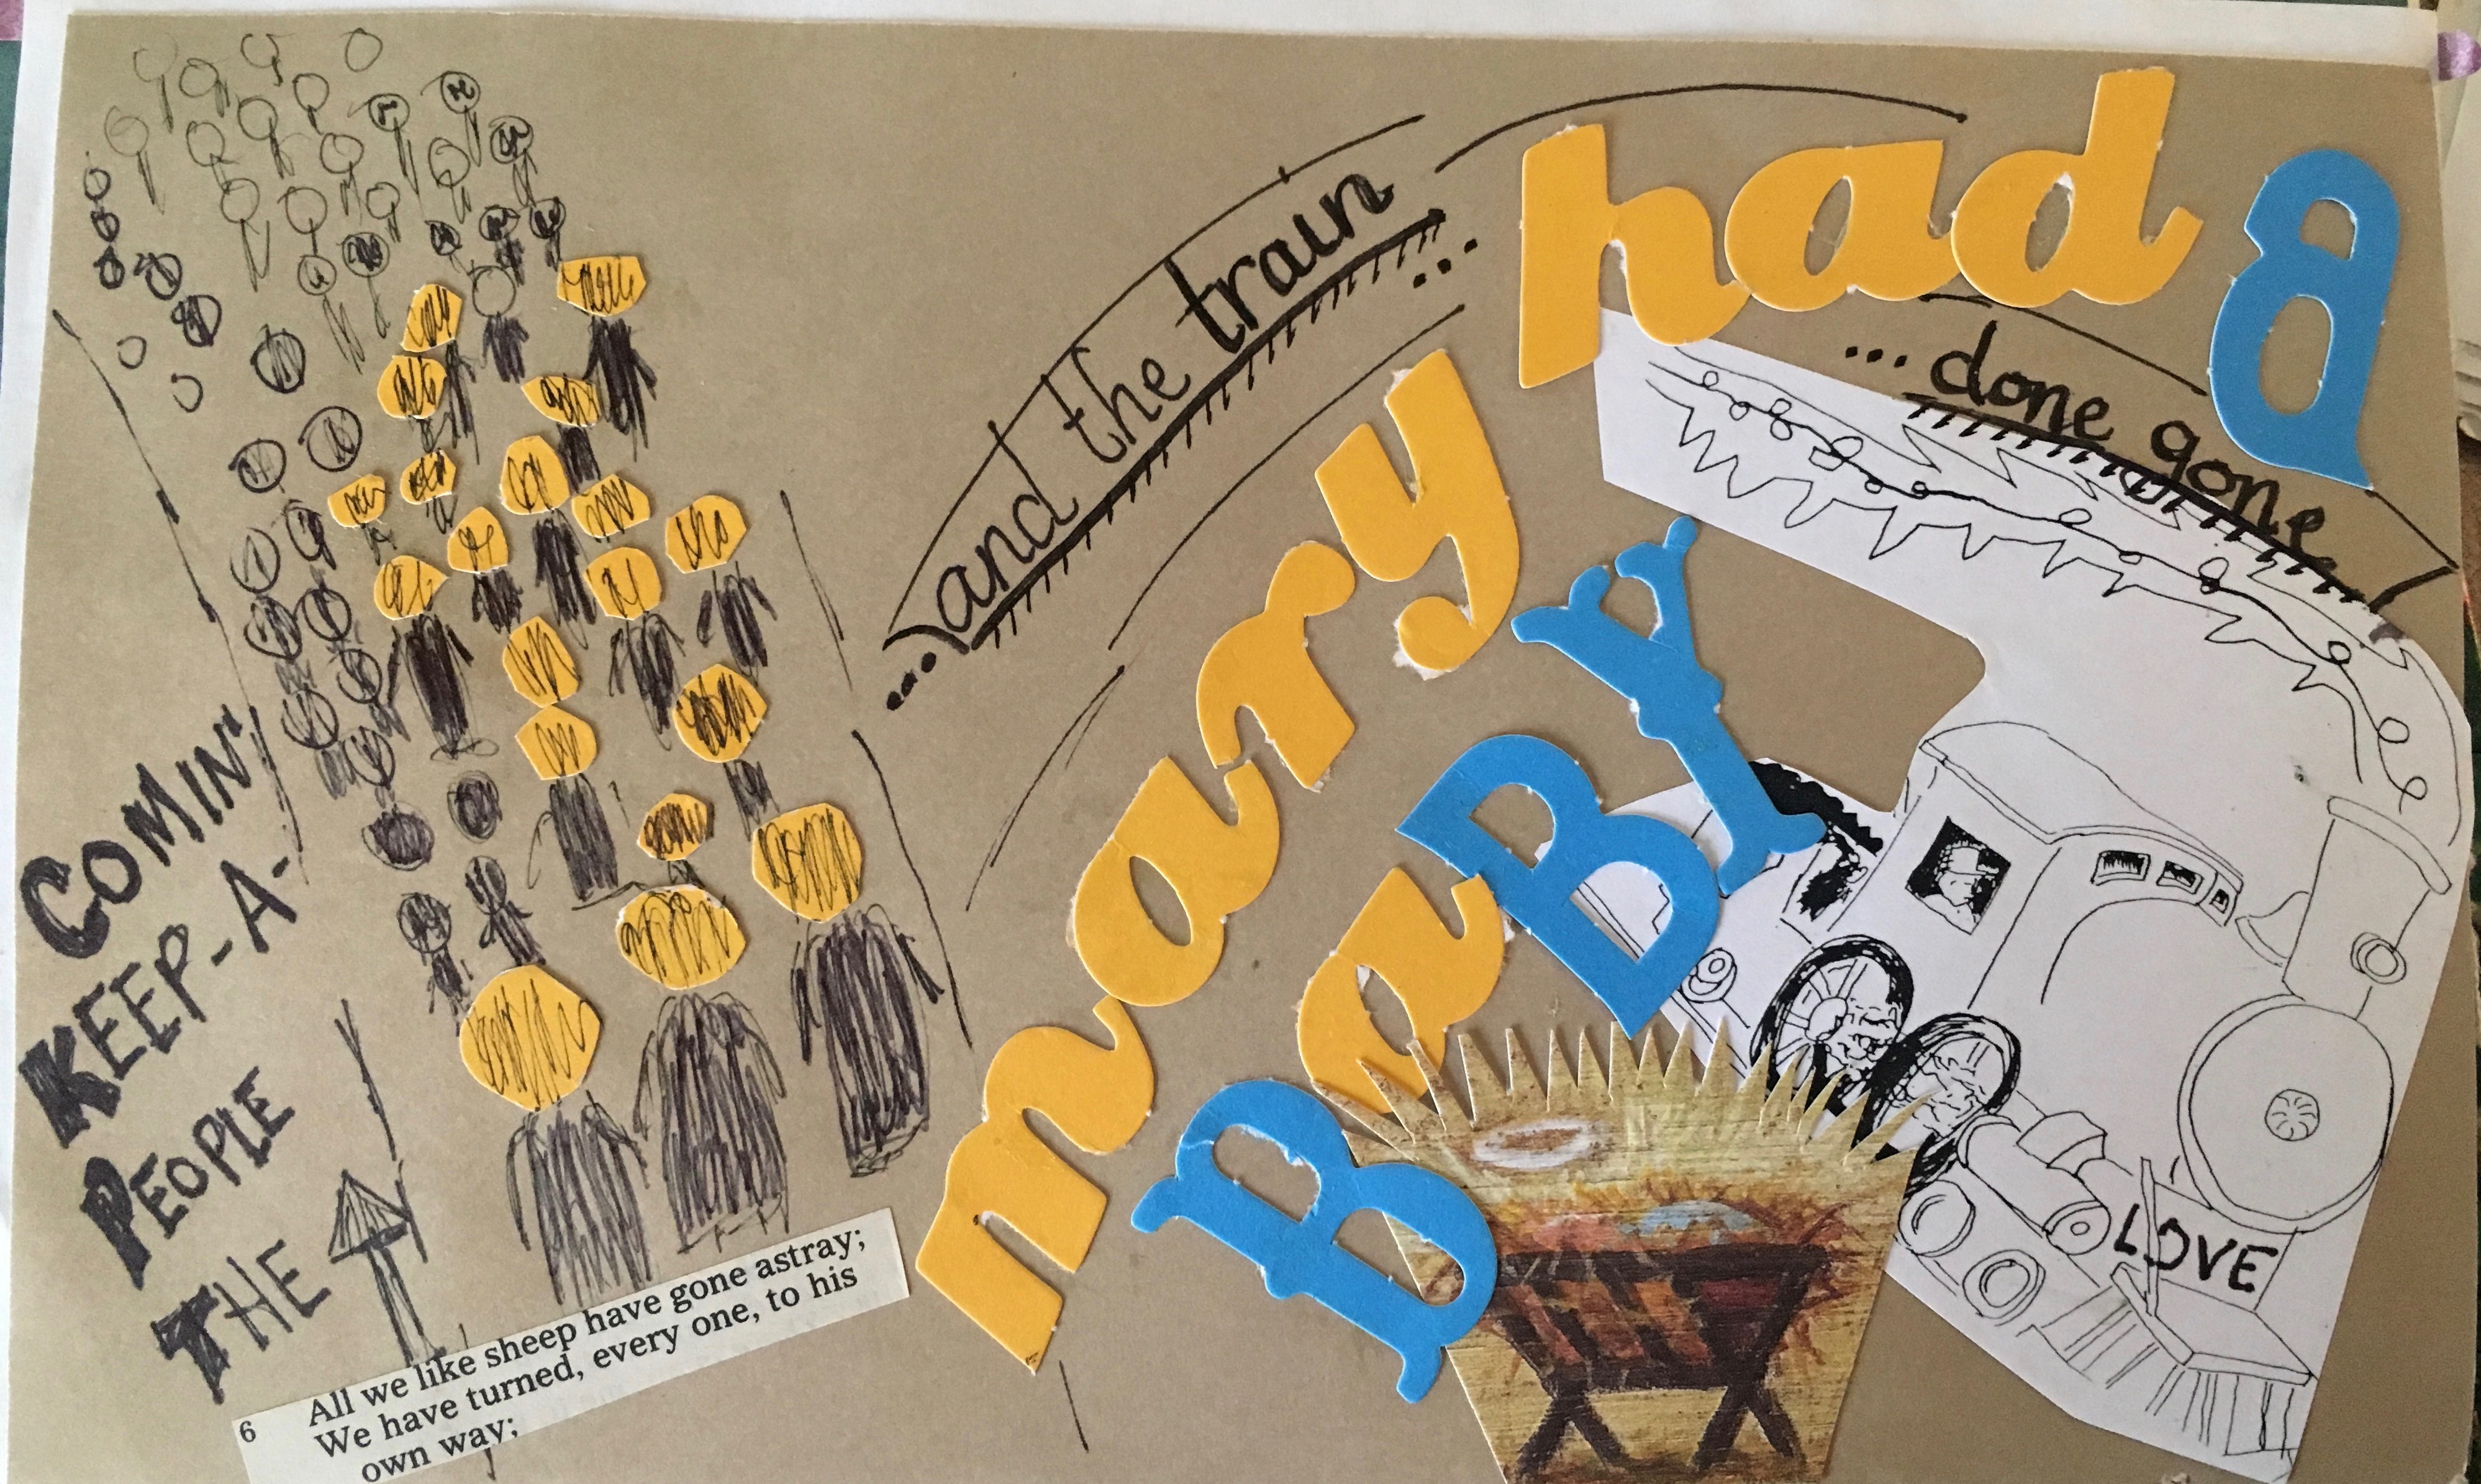 THE
PEOPLE
KEEP-A-
COMIN'
6 All we like sheep have gone astray;
We have turned, every one, to his
own way;
...and the train...
...done gone
mary had a
BaBY
LOVE